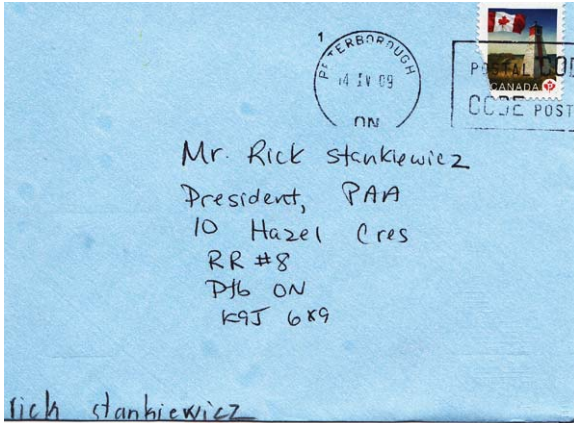 1
PETERBOROUGH
14 IV 09
ON
POSTAL CODE
CODE POST
CANADA P
Mr. Rick Stankiewicz
President, PAA
10 Hazel Cres
RR #8
Ptb ON
K9J 6X9
rick stankiewicz